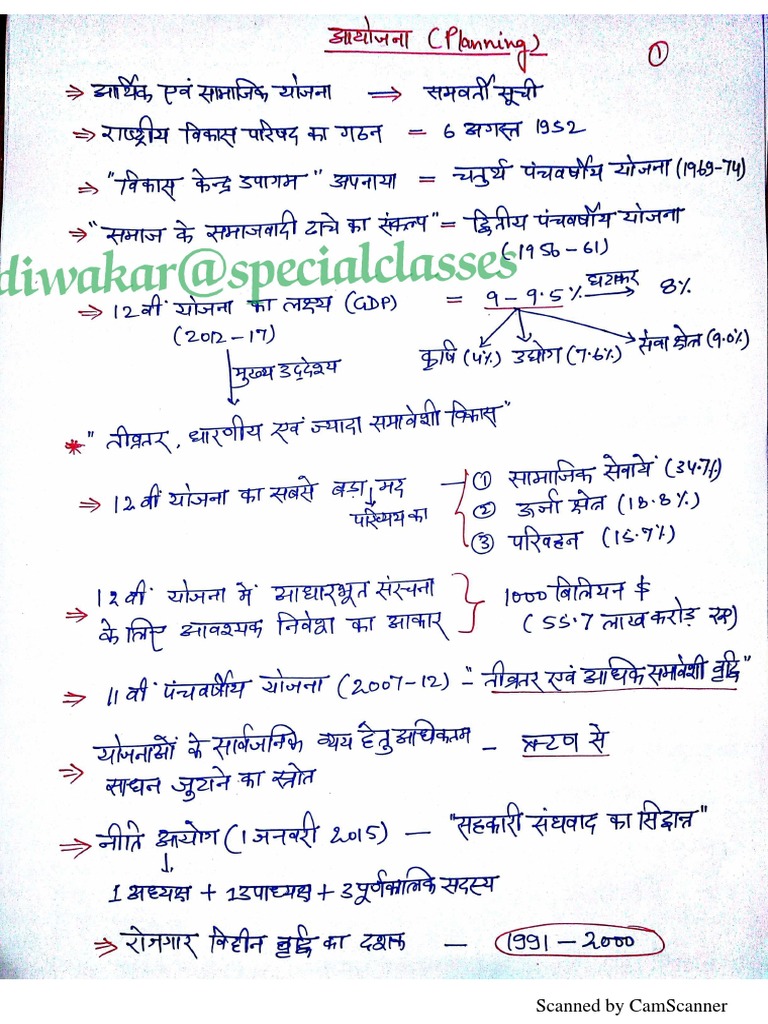 आयोजना (Planning)
①
⇒ आर्थिक एवं सामाजिक योजना ⟶ समवर्ती सूची
⇒ राष्ट्रीय विकास परिषद का गठन = 6 अगस्त 1952
⇒ "विकास केन्द्र उपागम" अपनाया = चतुर्थ पंचवर्षीय योजना (1969-74)
⇒ "समाज के समाजवादी ढाचे का संकल्प" = द्वितीय पंचवर्षीय योजना
(1956-61)
diwakar@specialclasses
⇒ 12वीं योजना का लक्ष्य (GDP) = 9-9.5% घटाकर → 8%
(2012-17)
कृषि (4%) उद्योग (7.6%) सेवा क्षेत्र (9.0%)
मुख्य उद्देश्य
* "तीव्रतर, धारणीय एवं ज्यादा समावेशी विकास"
⇒ 12वीं योजना का सबसे बड़ा मद
परिव्यय का
① सामाजिक सेवायें (34.7%)
② ऊर्जा क्षेत्र (18.8%)
③ परिवहन (15.7%)
⇒ 12वीं योजना में आधारभूत संरचना
के लिए आवश्यक निवेश का आकार
1000 बिलियन $
(55.7 लाख करोड़ रू)
⇒ 11वीं पंचवर्षीय योजना (2007-12) - "तीव्रतर एवं अधिक समावेशी वृद्धि"
⇒ योजनाओं के सार्वजनिक व्यय हेतु अधिकतम
साधन जुटाने का स्रोत - ऋण से
⇒ नीति आयोग (1 जनवरी 2015) - "सहकारी संघवाद का सिद्धान्त"
1 अध्यक्ष + 1 उपाध्यक्ष + 3 पूर्णकालिक सदस्य
⇒ रोजगार विहीन वृद्धि का दशक - 1991-2000
Scanned by CamScanner